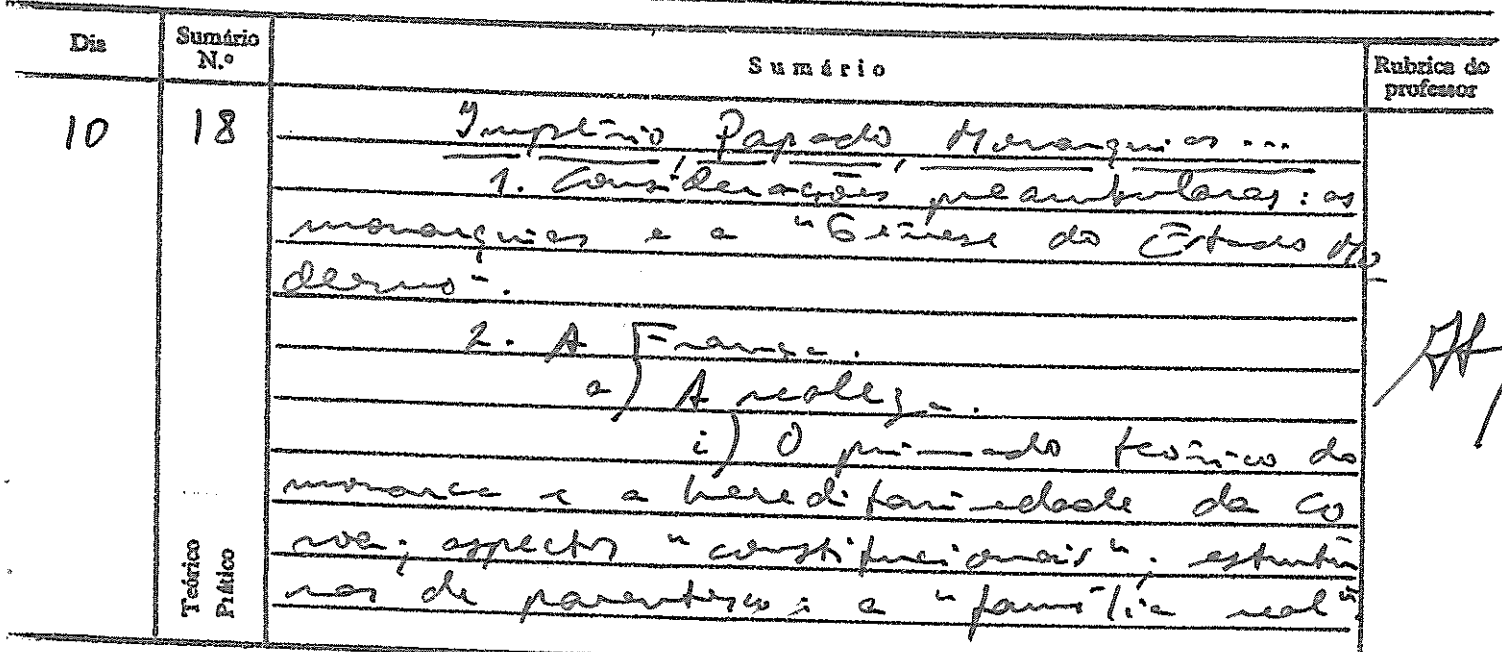 Dia Sumário N.º Sumário Rubrica do professor
10 18 Império, Papado, Monarquias ...
1. Considerações preambulares: as
monarquias e a "Génese do Estado Mo
derno".
2. A França.
a) A realeza.
i) O primado teórico do
monarca e a hereditariedade da co
roa; aspectos "constitucionais"; estrutu
ras de parentesco; a "família real";
Teórico
Prático